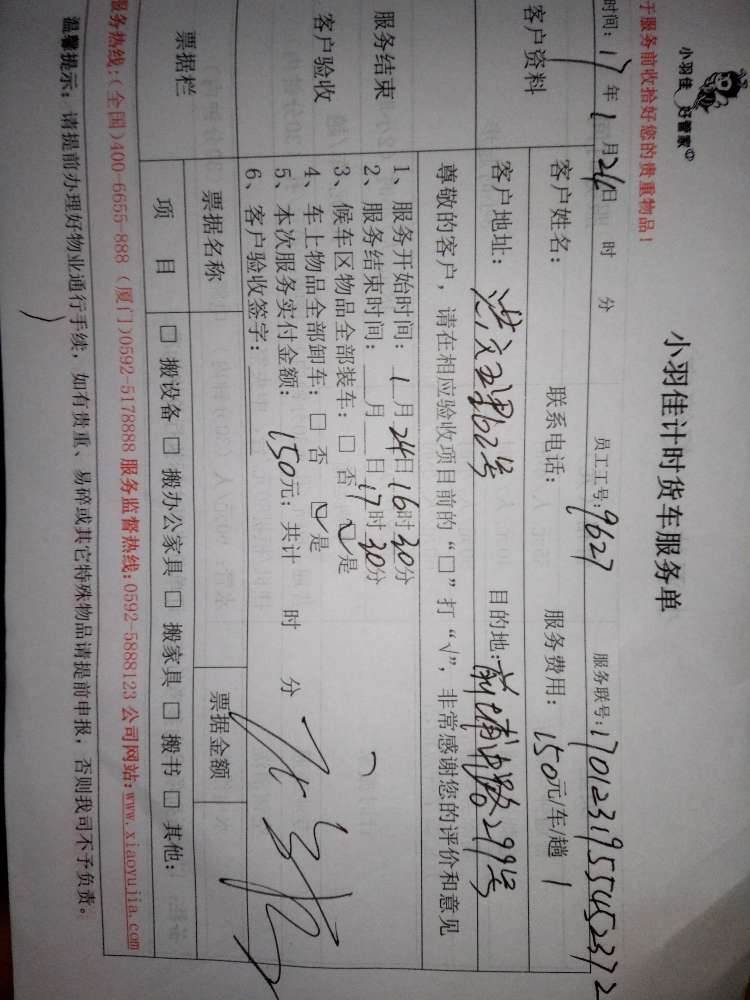 小羽佳 好管家
于服务前收拾好您的贵重物品！
小羽佳计时货车服务单
时间：17年1月24日 时 分 员工工号：9627 服务联号：1701231955452372
客户资料
客户姓名： 联系电话： 服务费用：150元/车/趟 1
客户地址：洪文五里62号 目的地：前埔中路299号
尊敬的客户，请在相应验收项目前的“□”打“√”，非常感谢您的评价和意见
服务结束
客户验收
1、服务开始时间：1月24日16时30分
2、服务结束时间：__月__日17时30分
3、候车区物品全部装车：□ 否 ☑是
4、车上物品全部卸车：□ 否 ☑是
5、本次服务实付金额：150元；共计 时 分
6、客户验收签字：
票据栏
票据名称 票据金额
项 目 □ 搬设备 □ 搬办公家具 □ 搬家具 □ 搬书 □ 其他：
服务热线：(全国)400-6655-888 (厦门)0592-5178888 服务监督热线：0592-5888123 公司网站：www.xiaoyujia.com
温馨提示：请提前办理好物业通行手续，如有贵重、易碎或其它特殊物品请提前申报，否则我司不予负责。